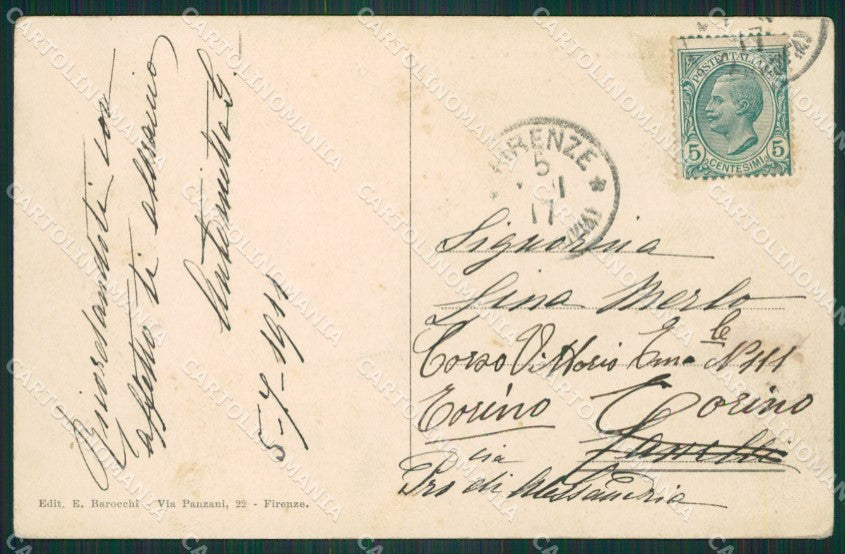 Ricordandoti con
affetto ti baciamo
Antonietta G.
5-7-1911
Edit. E. Barocchi - Via Panzani, 22 - Firenze.
POSTE ITALIANE
5 CENTESIMI 5
FIRENZE
5
17
17
Signorina
Gina Merlo
Corso Vittorio Ema le N° 111
Torino Torino
Pro di Alessandria
CARTOLINOMANIA